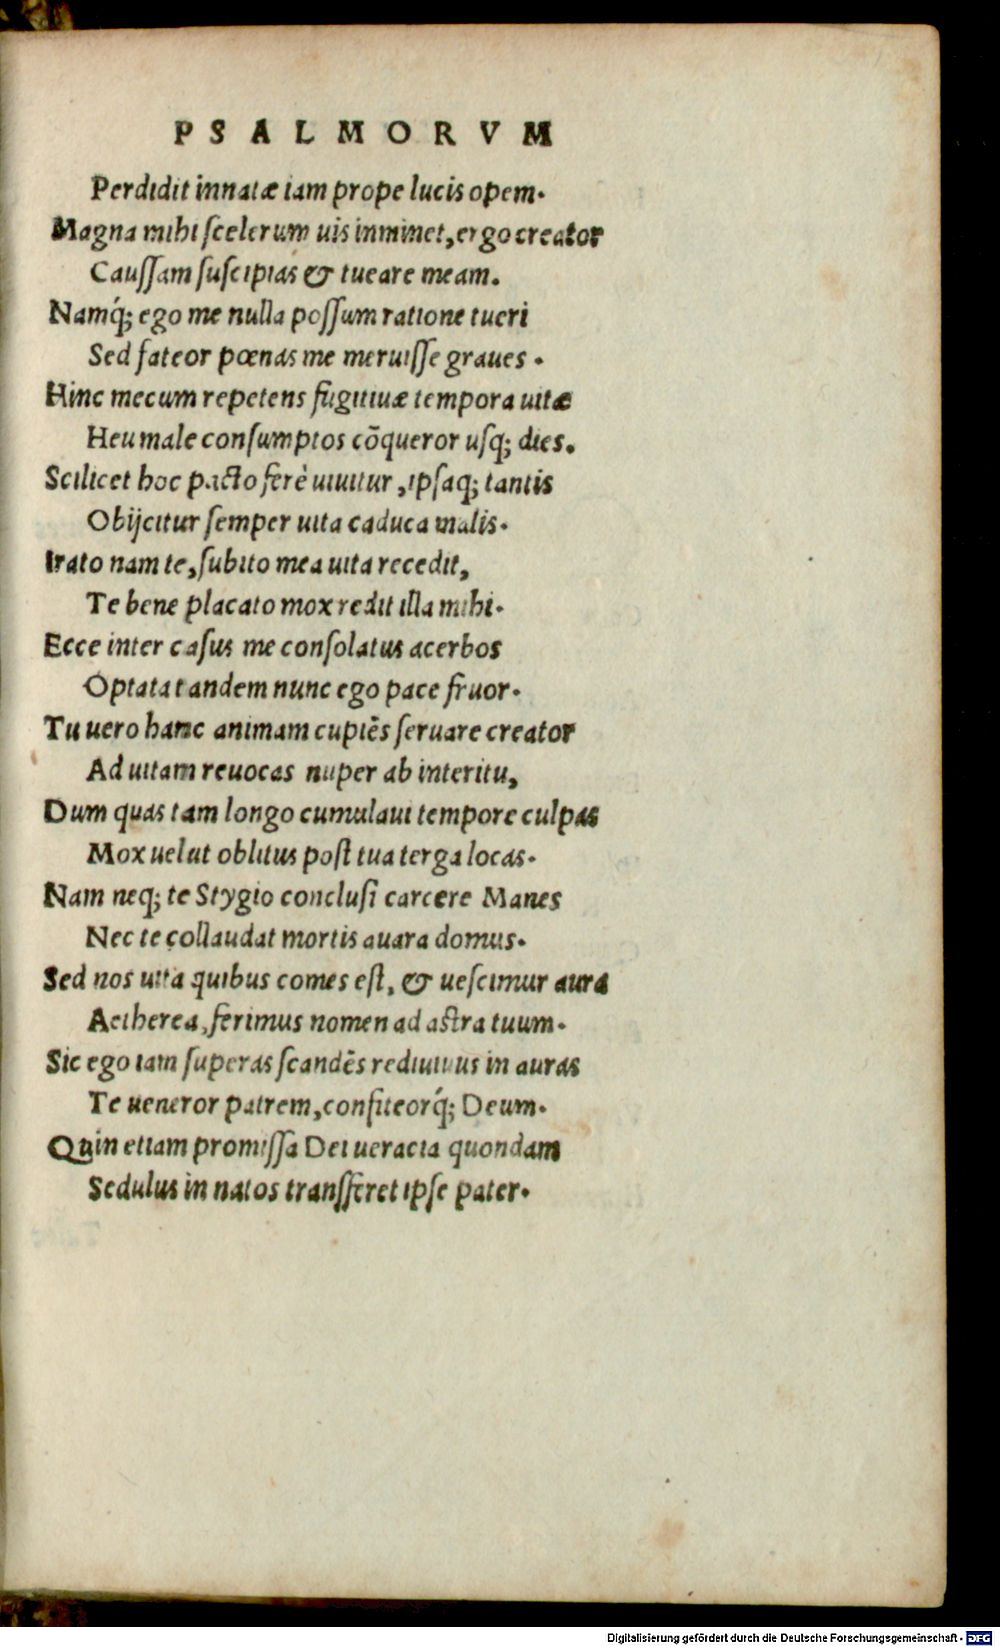 PSALMORVM
Perdidit innatæ iam prope lucis opem.
Magna mihi ſcelerum uis inminet, ergo creator
Cauſſam ſuſcipias & tueare meam.
Namq́; ego me nulla poſſum ratione tueri
Sed fateor pœnas me meruiſſe graues.
Hinc mecum repetens fugitiuæ tempora uitæ
Heu male conſumptos cōqueror uſq; dies.
Scilicet hoc pacto ferè uiuitur, ipſaq; tantis
Obijcitur ſemper uita caduca malis.
Irato nam te, ſubito mea uita recedit,
Te bene placato mox redit illa mihi.
Ecce inter caſus me conſolatus acerbos
Optata tandem nunc ego pace fruor.
Tu uero hanc animam cupiēs ſeruare creator
Ad uitam reuocas nuper ab interitu,
Dum quas tam longo cumulaui tempore culpas
Mox uelut oblitus poſt tua terga locas.
Nam neq; te Stygio concluſi carcere Manes
Nec te collaudat mortis auara domus.
Sed nos uita quibus comes eſt, & ueſcimur aura
Aetherea, ferimus nomen ad aſtra tuum.
Sic ego iam ſuperas ſcandēs rediuiuus in auras
Te ueneror patrem, confiteorq́; Deum.
Quin etiam promiſſa Dei ueracia quondam
Sedulus in natos transferet ipſe pater.
Digitalisierung gefördert durch die Deutsche Forschungsgemeinschaft - DFG